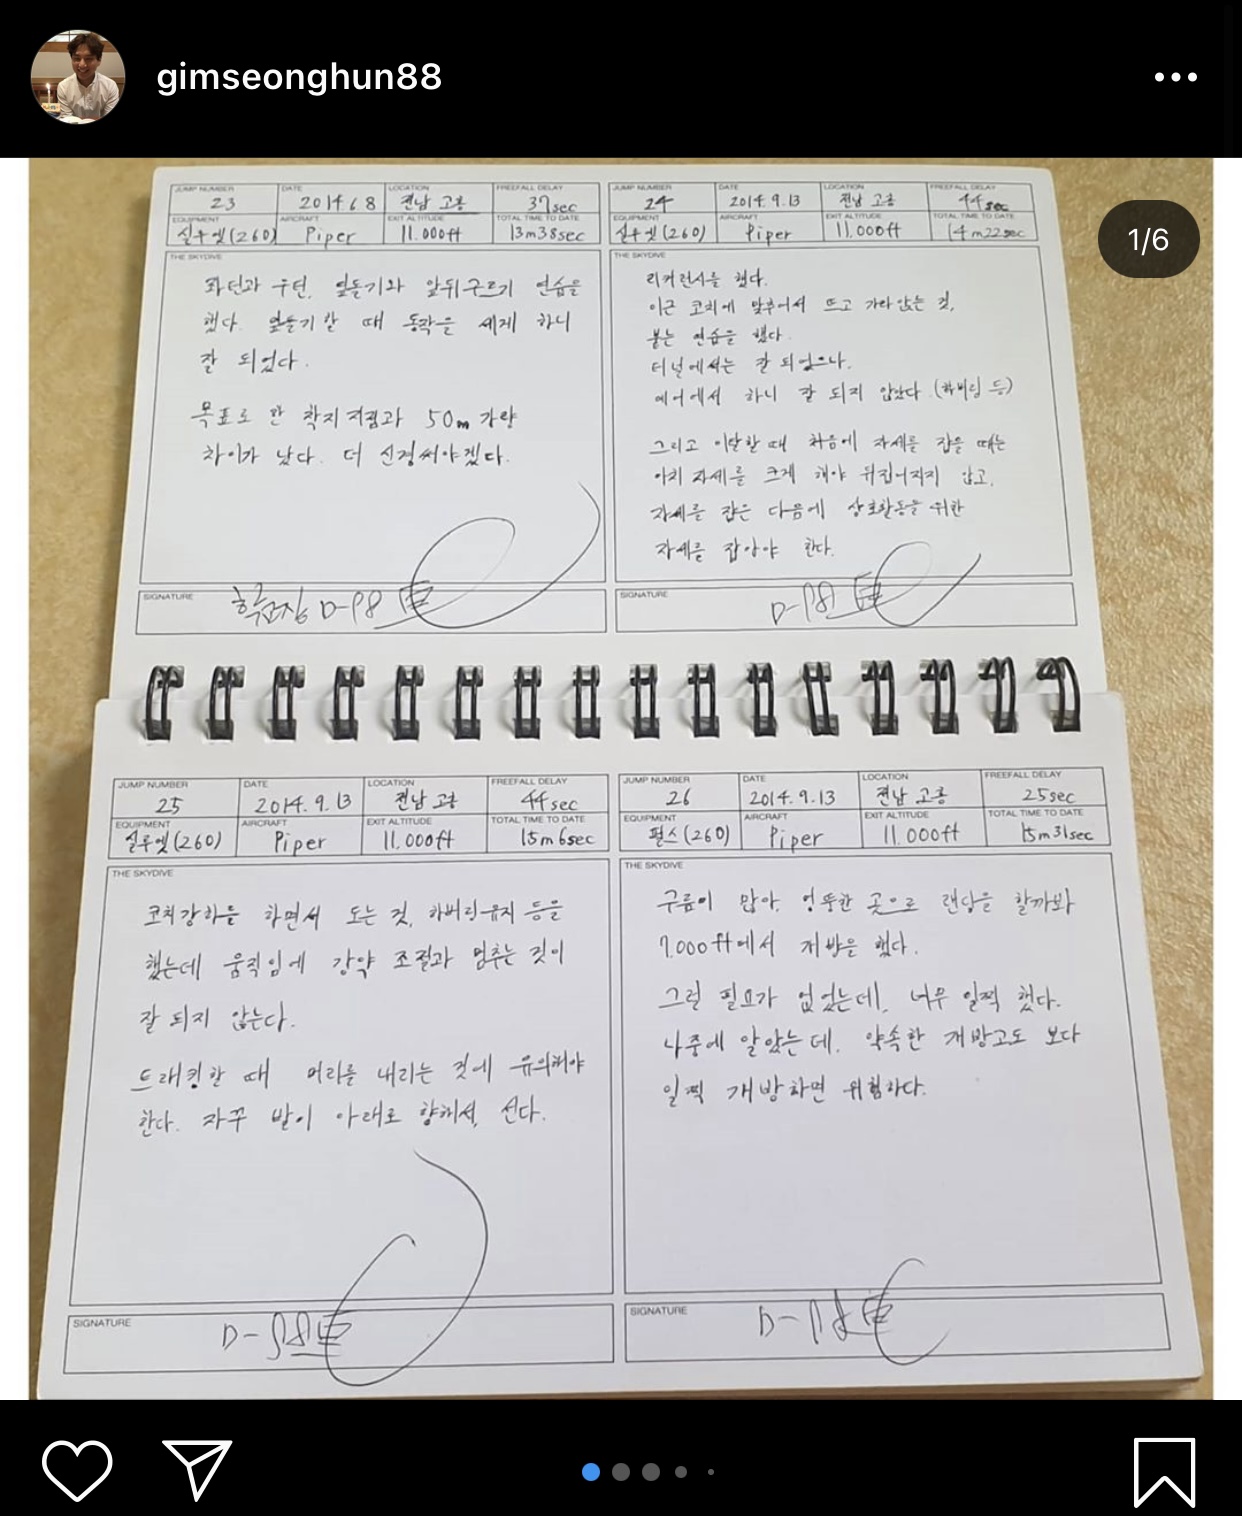 gimseonghun88
1/6
JUMP NUMBER DATE LOCATION FREEFALL DELAY
23 2014.6.8 전남 고흥 37sec
EQUIPMENT AIRCRAFT EXIT ALTITUDE TOTAL TIME TO DATE
실루엣(260) Piper 11.000ft 13m38sec
THE SKYDIVE
좌턴과 우턴, 옆돌기와 앞뒤구르기 연습을
했다. 옆돌기 할 때 동작을 세게 하니
잘 되었다.
목표로 한 착지지점과 50m 가량
차이가 났다. 더 신경써야겠다.
SIGNATURE
D-98
JUMP NUMBER DATE LOCATION FREEFALL DELAY
24 2014.9.13 전남 고흥 44sec
EQUIPMENT AIRCRAFT EXIT ALTITUDE TOTAL TIME TO DATE
실루엣(260) Piper 11.000ft 14m22sec
THE SKYDIVE
리커런시를 했다.
이근 코치에 맞추어서 뜨고 가라앉는 것,
붙는 연습을 했다.
터널에서는 잘 되었으나,
에어에서 하니 잘 되지 않았다 (하버링 등)
그리고 이탈할 때 처음에 자세를 잡을 때는
아치 자세를 크게 해야 뒤집어지지 않고,
자세를 잡은 다음에 상호활동을 위한
자세를 잡아야 한다.
SIGNATURE
D-98
JUMP NUMBER DATE LOCATION FREEFALL DELAY
25 2014.9.13 전남 고흥 44sec
EQUIPMENT AIRCRAFT EXIT ALTITUDE TOTAL TIME TO DATE
실루엣(260) Piper 11.000ft 15m6sec
THE SKYDIVE
코치강하를 하면서 도는 것, 하버링유지 등을
했는데 움직임에 강약 조절과 멈추는 것이
잘 되지 않는다.
트래킹할 때 머리를 내리는 것에 유의해야
한다. 자꾸 발이 아래로 향해서, 선다.
SIGNATURE
D-98
JUMP NUMBER DATE LOCATION FREEFALL DELAY
26 2014.9.13 전남 고흥 25sec
EQUIPMENT AIRCRAFT EXIT ALTITUDE TOTAL TIME TO DATE
펄스(260) Piper 11.000ft 15m31sec
THE SKYDIVE
구름이 많아, 엉뚱한 곳으로 랜딩을 할까봐
7.000ft에서 개방을 했다.
그럴 필요가 없었는데, 너무 일찍 했다.
나중에 알았는데, 약속한 개방고도 보다
일찍 개방하면 위험하다.
SIGNATURE